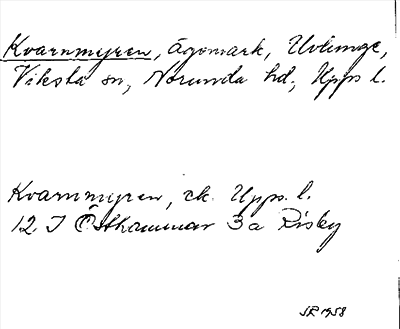 Kvarnmyren, ägomark, Uvlunge,
Viksta sn, Norunda hd, Upps. l.
Kvarnmyren, ek. Upps. l.
12 I Östhammar 3a Risby
SR 1958